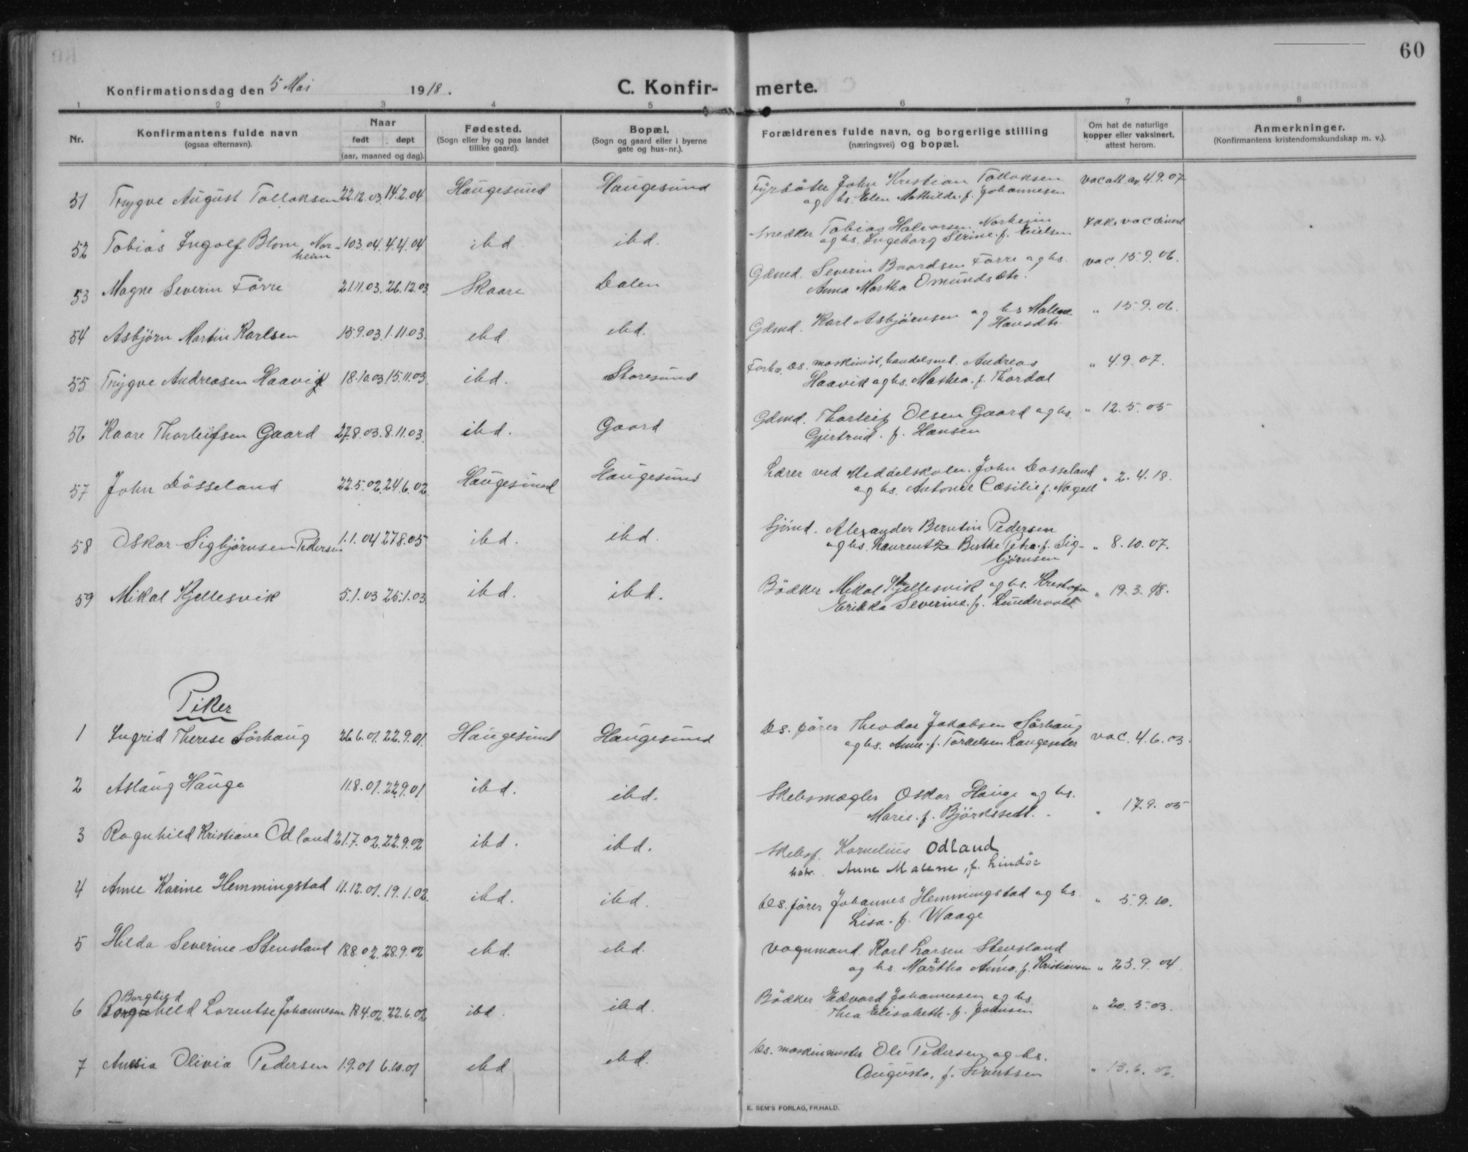 60
Konfirmationsdag den 5 Mai 1918.
C. Konfirmerte.
1 2 3 4 5 6 7 8
Nr.
Konfirmantens fulde navn
(ogsaa efternavn).
Naar
født døpt
(aar, maaned og dag).
Fødested.
(Sogn eller by og paa landet
tillike gaard).
Bopæl.
(Sogn og gaard eller i byerne
gate og hus-nr.).
Forældrenes fulde navn, og borgerlige stilling
(næringsvei) og bopæl.
Om hat de naturlige
kopper eller vaksinert,
attest herom.
Anmerkninger.
(Konfirmantens kristendomskundskap m. v.).
51 Trygve August Tolloksen 22.12.03 14.2.04 Haugesund Haugesund Fyrbøter John Kristian Tolloksen vac att av 4.9.07
og hs. Elen Mathilde f. Johannesen
52 Tobias Ingolf Blom Nor- 10.3.04 4.4.04 ibd. ibd. Snedker Tobias Halvorsen Norheim
heim og hs. Ingeborg Serine f. Eielsen
53 Magne Severin Förre 21.11.03 26.12.03 Skaare Dalen Gdmd. Severin Baardsen Förre og hs. vac. 15.9.06.
Anna Martha Osmundsdtr.
54 Asbjörn Martin Karlsen 15.9.03 1.11.03 ibd ibd. Gdmd. Karl Asbjörnsen og hs Malene " 15.9.06.
Hansdtr
55 Trygve Andreasen Haavig 18.10.03 15.11.03 ibd. Storesund Forhv. ds. maskinist, handelsmd. Andreas " 4.9.07.
Haavik og hs. Marthea f. Thordal
56 Kaare Thorleifsen Gaard 27.8.03. 8.11.03 ibd. Gaard Gdmd. Thorleif Olsen Gaard og hs. " 12.5.05
Gjertrud f. Hansen
57 John Dösseland 22.5.02 24.6.02 Haugesund Haugesund Lærer ved Middelskolen John Dosseland " 2.4.18.
og hs. Antonie Cæsilie f. Nagell
58 Oskar Sigbjörnsen Pedersen 1.1.04 27.8.05 ibd. ibd. Sjömd. Alexander Berntin Pedersen
og hs. Laurentze Berthe Petra f. Sig- " 8.10.07.
björnsen
59 Mikal Kjellesvik 5.1.03 25.1.03 ibd. ibd. Bödker Mikal Kjellesvik og hs. " 19.3.18.
Erikka Severine f. Lundervold
Piker
1 Ingrid Therese Sörhaug 26.6.01 22.9.01 Haugesund Haugesund Ds. förer Theodor Jakobsen Sörhaug vac. 4.6.03.
og hs. Anne f. Torkelsen Langeseter
2 Aslaug Hauge 11.8.01 22.9.01 ibd. ibd. Skibsmægler Oskar Hauge og hs. " 17.9.05
Marie f. Björkesett.
3 Ragnhild Kristiane Odland 21.7.02. 22.9.02 ibd. ibd. Skibsf. Kornelius Odland
hstr. Anne Malene, f. Lindöe
4 Anne Karine Hemmingstad 11.12.01 19.1.02 ibd. ibd. Ds. förer Johannes Hemmingstad og hs. " 5.9.10.
Lisa f. Waage
5 Hilda Severine Stensland 18.8.02. 28.9.02 ibd. ibd. Vognmand Karl Larsen Stensland
og hs. Martha Anna f. Kristiansen " 23.9.04.
6 Borghild Lorentse Johannesen 18.4.02 22.6.02 ibd. ibd. Bödker Edvard Johannesen og hs. " 20.5.03.
Thea Elisabeth f.
7 Olivia Pedersen 1.9.01 6.10.01 ibd ibd. Ds. maskinmester Ole Pedersen og hs. " 13.6.06.
Augusta, f. Sivertsen
E. SEM'S FORLAG, FR.HALD.